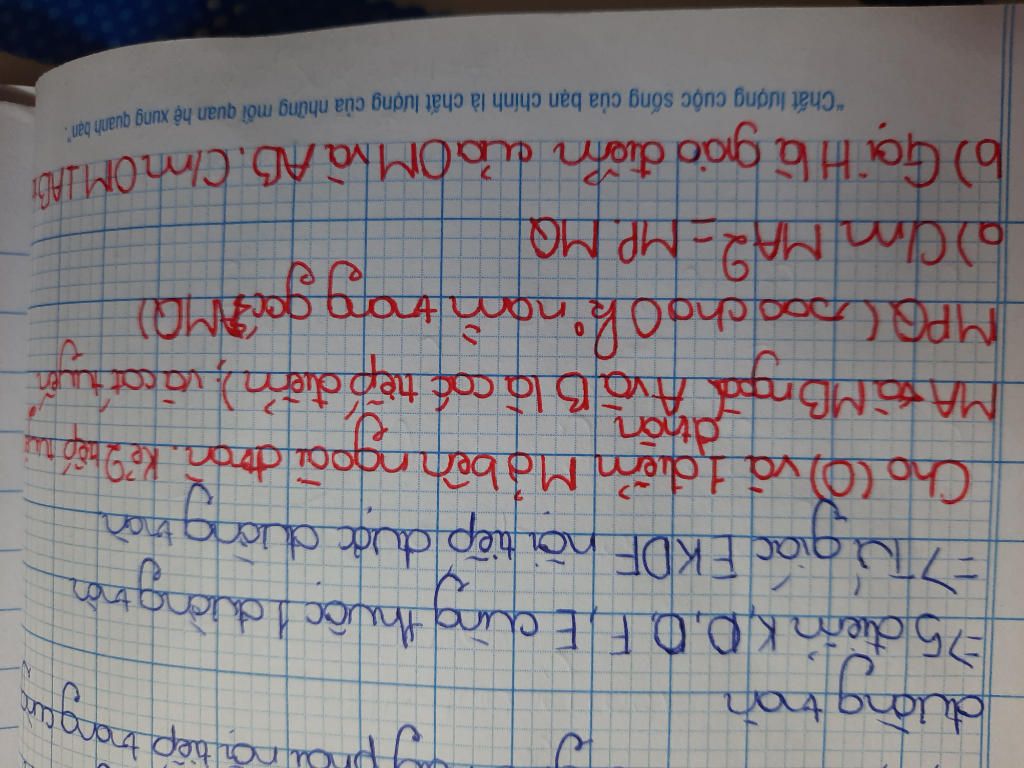 phải nội tiếp trong
đường tròn
=> 5 điểm K, D, O, F, E cùng thuộc 1 đường tròn
=> Tứ giác EKDF nội tiếp được đường tròn
Cho (O) và 1 điểm M ở bên ngoài đtròn. Kẻ 2 tiếp
đtròn
MA và MB A và B là các tiếp điểm), và cát tuyến
MPQ (sao cho O k° nằm trong góc AMQ)
a) C/m MA2 = MP.MQ
b) Gọi H là giao điểm của OM và AB. C/m OM⊥AB
"Chất lượng cuộc sống của bạn chính là chất lượng của những mối quan hệ xung quanh bạn".